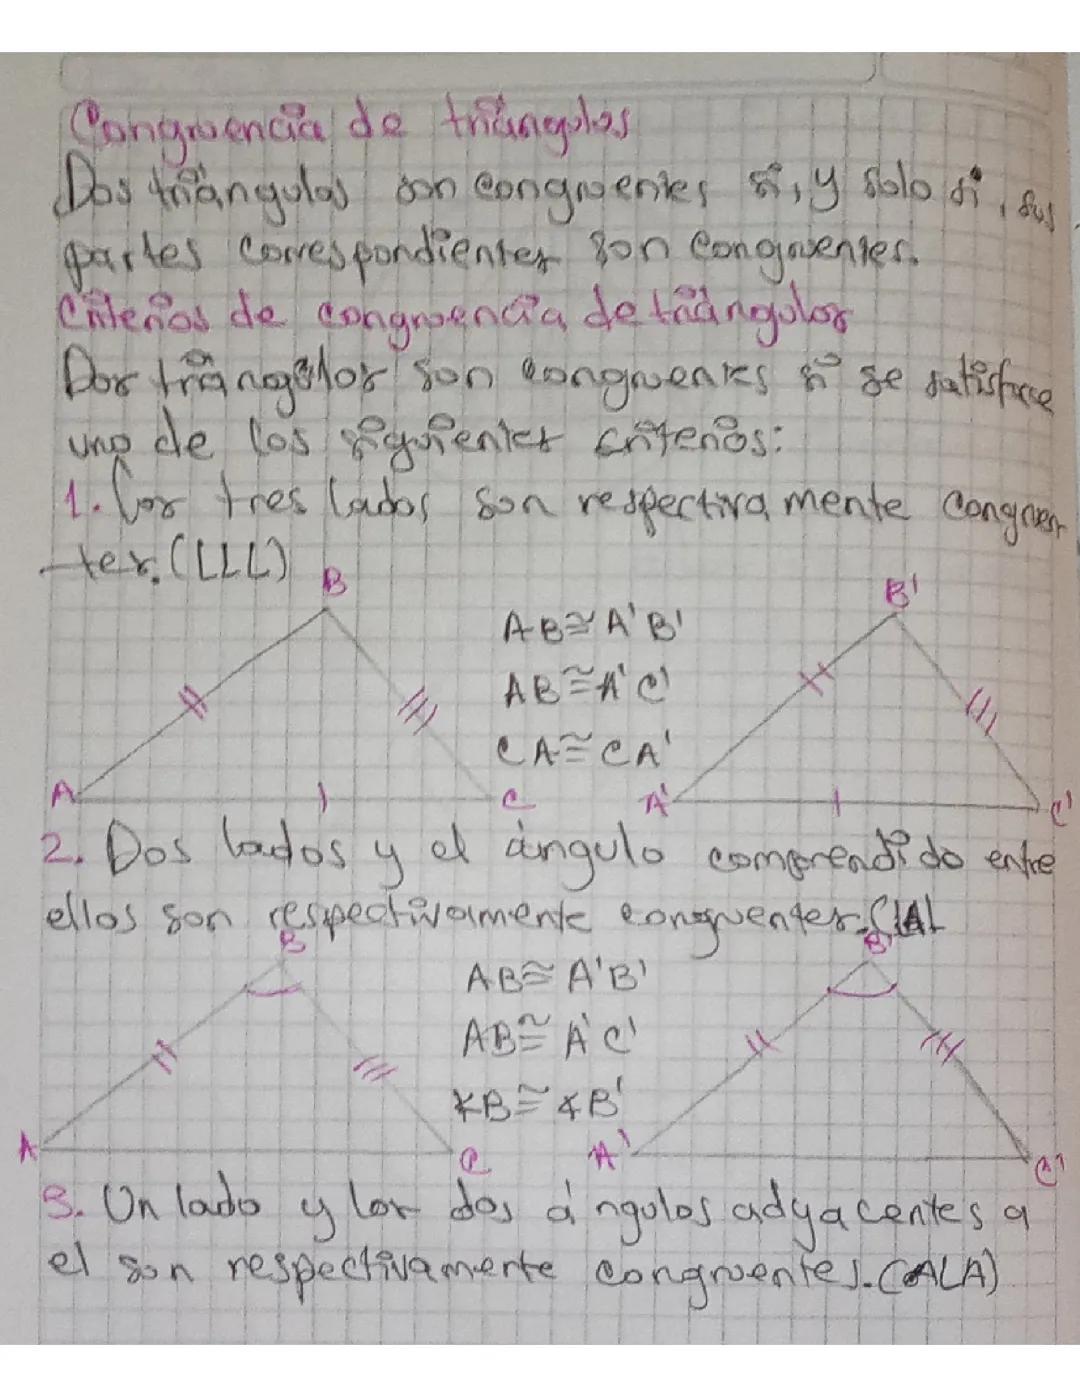 Congruencia de triángulos
Dos triángulos son congruentes si, y solo si, sus
partes correspondientes son congruentes.
Criterios de congruencia de triángulos
Dos triángulos son congruentes si se satisface
uno de los siguientes criterios:
1. Los tres lados son respectivamente congruen
-tes. (LLL)
B B'
AB≅A'B'
AB≅A'C'
CA≅CA'
A C A' C'
2. Dos lados y el ángulo comprendido entre
ellos son respectivamente congruentes.(LAL
B B'
AB≅A'B'
AB≅A'C'
∢B≅∢B'
A C A' C'
3. Un lado y los dos ángulos adyacentes a
el son respectivamente congruentes.(ALA)